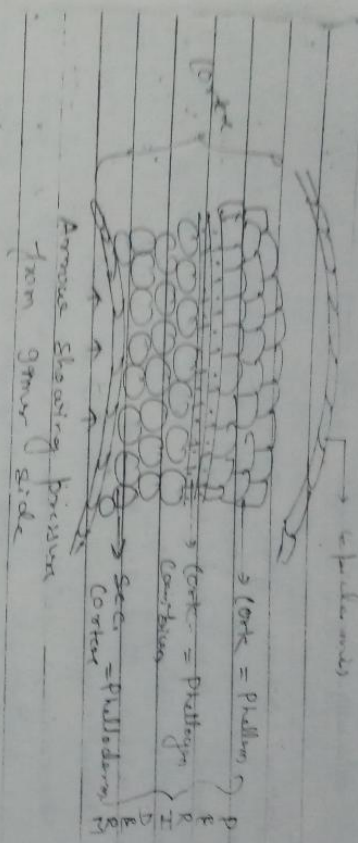 → Epidermis
Cortex
→ Cork = Phellem
→ Cork = Phellogen
Cambium
→ Sec. = Phelloderm
Cortex
PERIDERM
Arrow showing pressure
from inner side